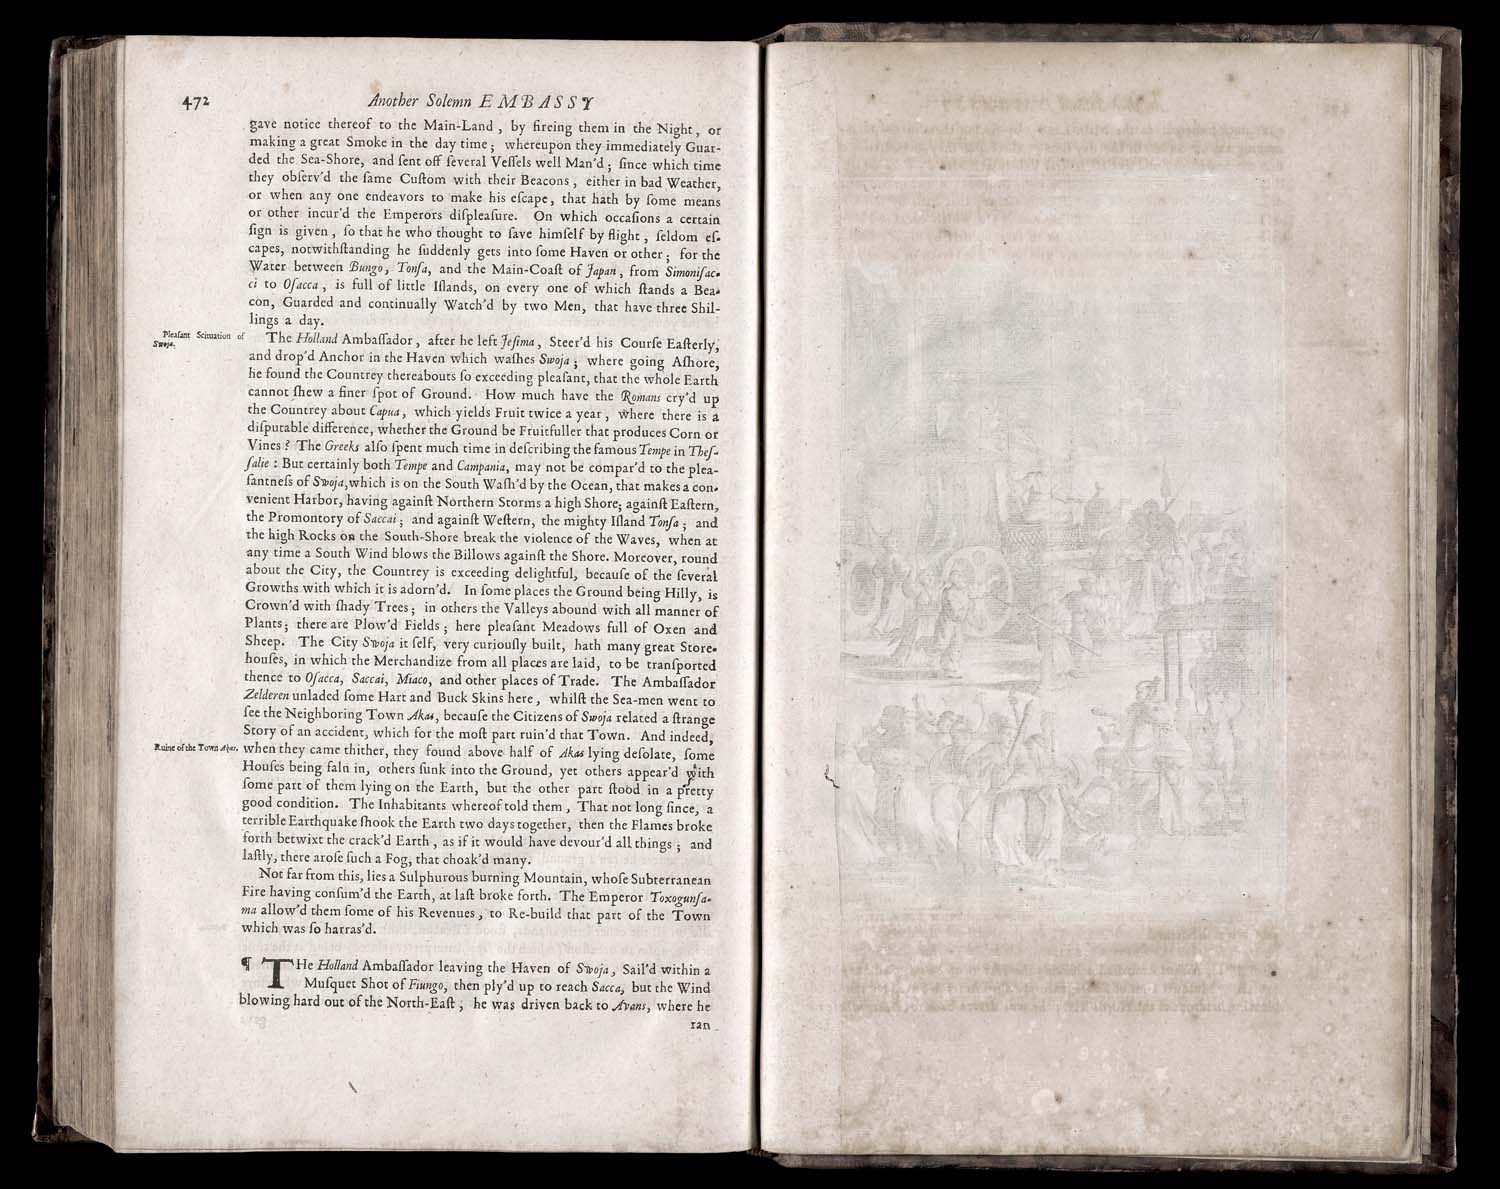 472
Another Solemn EMBASSY
gave notice thereof to the Main-Land , by fireing them in the Night , or
making a great Smoke in the day time ; whereupon they immediately Guar-
ded the Sea-Shore, and ſent off ſeveral Veſſels well Man'd ; ſince which time
they obſerv'd the ſame Cuſtom with their Beacons , either in bad Weather,
or when any one endeavors to make his eſcape , that hath by ſome means
or other incur'd the Emperors diſpleaſure. On which occaſions a certain
ſign is given , ſo that he who thought to ſave himſelf by flight , ſeldom eſ-
capes, notwithſtanding he ſuddenly gets into ſome Haven or other ; for the
Water between Bungo, Tonſa, and the Main-Coaſt of Japan , from Simoniſac-
ci to Oſacca , is full of little Iſlands, on every one of which ſtands a Bea-
con, Guarded and continually Watch'd by two Men, that have three Shil-
lings a day.
Pleaſant Scituation of
Swoja.
The Holland Ambaſſador , after he left Jeſima , Steer'd his Courſe Eaſterly,
and drop'd Anchor in the Haven which waſhes Swoja ; where going Aſhore,
he found the Countrey thereabouts ſo exceeding pleaſant, that the whole Earth
cannot ſhew a finer ſpot of Ground. How much have the Romans cry'd up
the Countrey about Capua , which yields Fruit twice a year , where there is a
diſputable difference, whether the Ground be Fruitfuller that produces Corn or
Vines ? The Greeks alſo ſpent much time in deſcribing the famous Tempe in Theſ-
ſalie : But certainly both Tempe and Campania, may not be compar'd to the plea-
ſantneſs of Swoja,which is on the South Waſh'd by the Ocean, that makes a con-
venient Harbor, having againſt Northern Storms a high Shore; againſt Eaſtern,
the Promontory of Saccai ; and againſt Weſtern, the mighty Iſland Tonſa ; and
the high Rocks on the South-Shore break the violence of the Waves, when at
any time a South Wind blows the Billows againſt the Shore. Moreover, round
about the City, the Countrey is exceeding delightful, becauſe of the ſeveral
Growths with which it is adorn'd. In ſome places the Ground being Hilly, is
Crown'd with ſhady Trees ; in others the Valleys abound with all manner of
Plants ; there are Plow'd Fields ; here pleaſant Meadows full of Oxen and
Sheep. The City Swoja it ſelf, very curiouſly built, hath many great Store-
houſes, in which the Merchandize from all places are laid, to be tranſported
thence to Oſacca, Saccai, Miaco, and other places of Trade. The Ambaſſador
Zelderen unladed ſome Hart and Buck Skins here , whilſt the Sea-men went to
ſee the Neighboring Town Akas, becauſe the Citizens of Swoja related a ſtrange
Story of an accident, which for the moſt part ruin'd that Town. And indeed,
Ruine of the Town Akas.
when they came thither, they found above half of Akas lying deſolate, ſome
Houſes being faln in, others ſunk into the Ground, yet others appear'd with
ſome part of them lying on the Earth, but the other part ſtood in a pretty
good condition. The Inhabitants whereof told them , That not long ſince, a
terrible Earthquake ſhook the Earth two days together, then the Flames broke
forth betwixt the crack'd Earth , as if it would have devour'd all things ; and
laſtly, there aroſe ſuch a Fog, that choak'd many.
Not far from this, lies a Sulphurous burning Mountain, whoſe Subterranean
Fire having conſum'd the Earth, at laſt broke forth. The Emperor Toxogunſa-
ma allow'd them ſome of his Revenues , to Re-build that part of the Town
which was ſo harras'd.
¶ THe Holland Ambaſſador leaving the Haven of Swoja , Sail'd within a
Muſquet Shot of Fiungo, then ply'd up to reach Sacca, but the Wind
blowing hard out of the North-Eaſt ; he was driven back to Avans, where he
ran